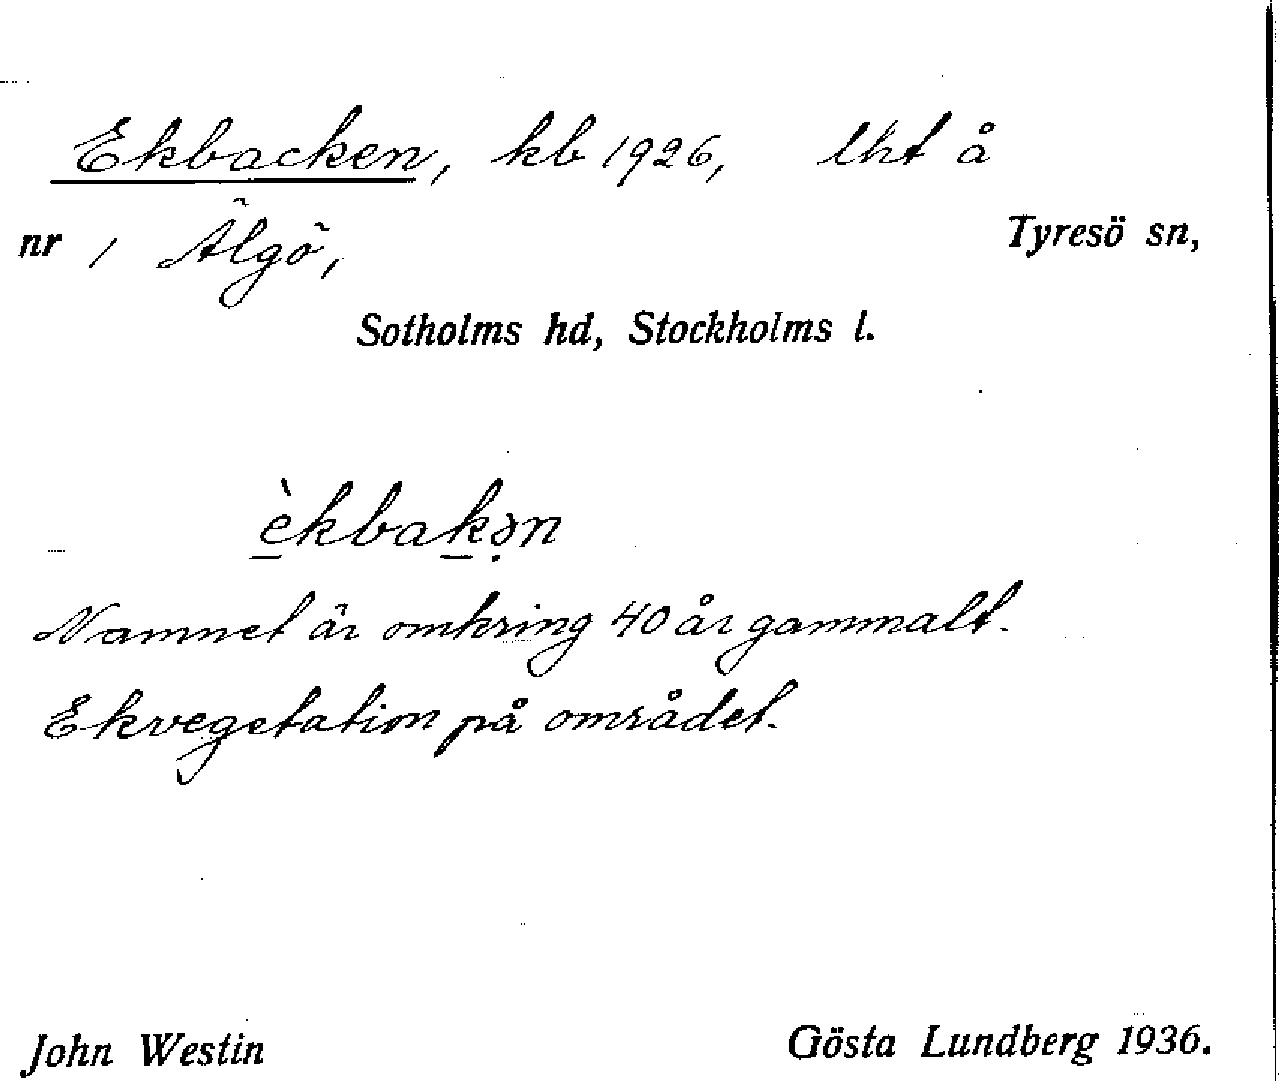 Ekbacken, kb 1926, lht å
nr 1 Älgö, Tyresö sn,
Sotholms hd, Stockholms l.
èkbakə̣n
Namnet är omkring 40 år gammalt.
Ekvegetation på området.
John Westin Gösta Lundberg 1936.